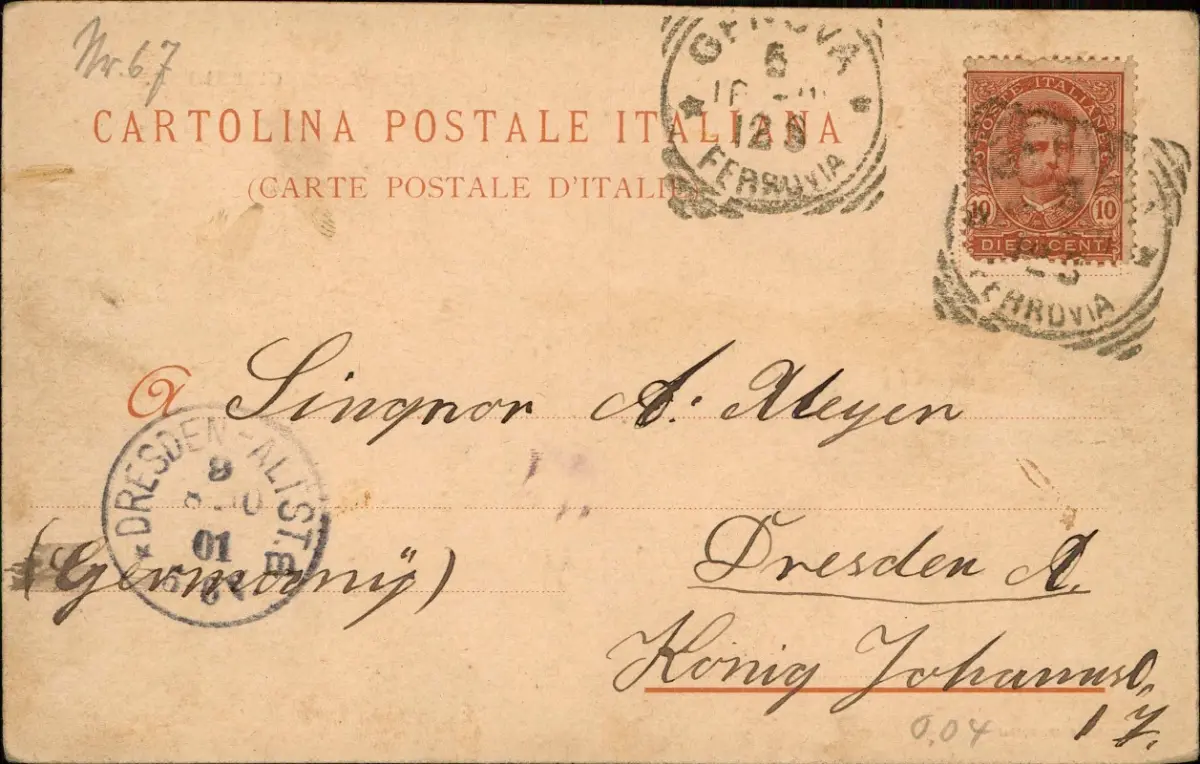 Nr. 67
CARTOLINA POSTALE ITALIANA
(CARTE POSTALE D'ITALIE)
GENOVA
5
FERROVIA
POSTE ITALIANE
10 10
DIECI CENT
FERROVIA
a Singnor A. Meyer
DRESDEN-ALTST.
8
01
Dresden A.
(Germanÿ)
König Johannst.
17.
0.04